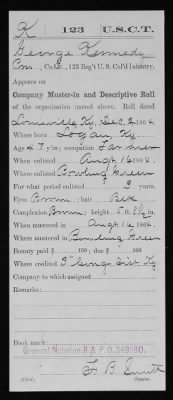 K | 123 | U.S.C.T.
George Kennedy
Co. E, 123 Reg't U. S. Col'd Infantry.
Appears on
Company Muster-in and Descriptive Roll
of the organization named above. Roll dated
Louisville, Ky, Dec. 2, 1864.
Where born Logan, Ky
Age 47 y'rs; occupation Farmer
When enlisted Augt 16, 1864.
Where enlisted Bowling Green
For what period enlisted 3 years.
Eyes Brown; hair Blk
Complexion Brown; height 5 ft. 8½ in.
When mustered in Augt 16, 1864.
Where mustered in Bowling Green
Bounty paid $ 100; due $ 100
Where credited 3d Cong. Dist. Ky
Company to which assigned
Remarks:
Book mark:
General Notation R & P.O. 349090.
F. B. Smith
(356d) Copyist.